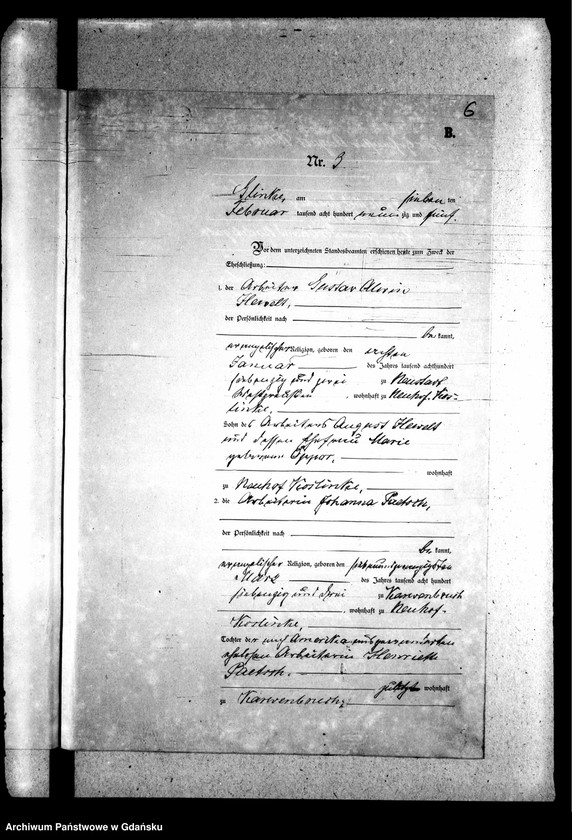 6
B.
Nr. 3
Glinke, am sieben ten
Februar tausend acht hundert neunzig und fünf.
Vor dem unterzeichneten Standesbeamten erschienen heute zum Zweck der
Eheschließung:
1. der Arbeiter Gustav
der Persönlichkeit nach
be kannt,
evangelischer Religion, geboren den ersten
Januar des Jahres tausend achthundert
siebenzig und zwei zu Neustadt
Westpreußen, wohnhaft zu Neuhof
Sohn des Arbeiters August
und dessen Ehefrau Marie
geborene
wohnhaft
zu Neuhof
2. die Arbeiterin Johanna Paetsch,
der Persönlichkeit nach
be kannt,
evangelischer Religion, geboren den siebenundzwanzigsten
März des Jahres tausend acht hundert
siebenzig und drei zu Karwenbruch
, wohnhaft zu Neuhof-
Tochter der nach Amerika ausgewanderten
ehelosen Arbeiterin Henriette
Paetsch.
zuletzt wohnhaft
zu Karwenbruch
Archiwum Państwowe w Gdańsku